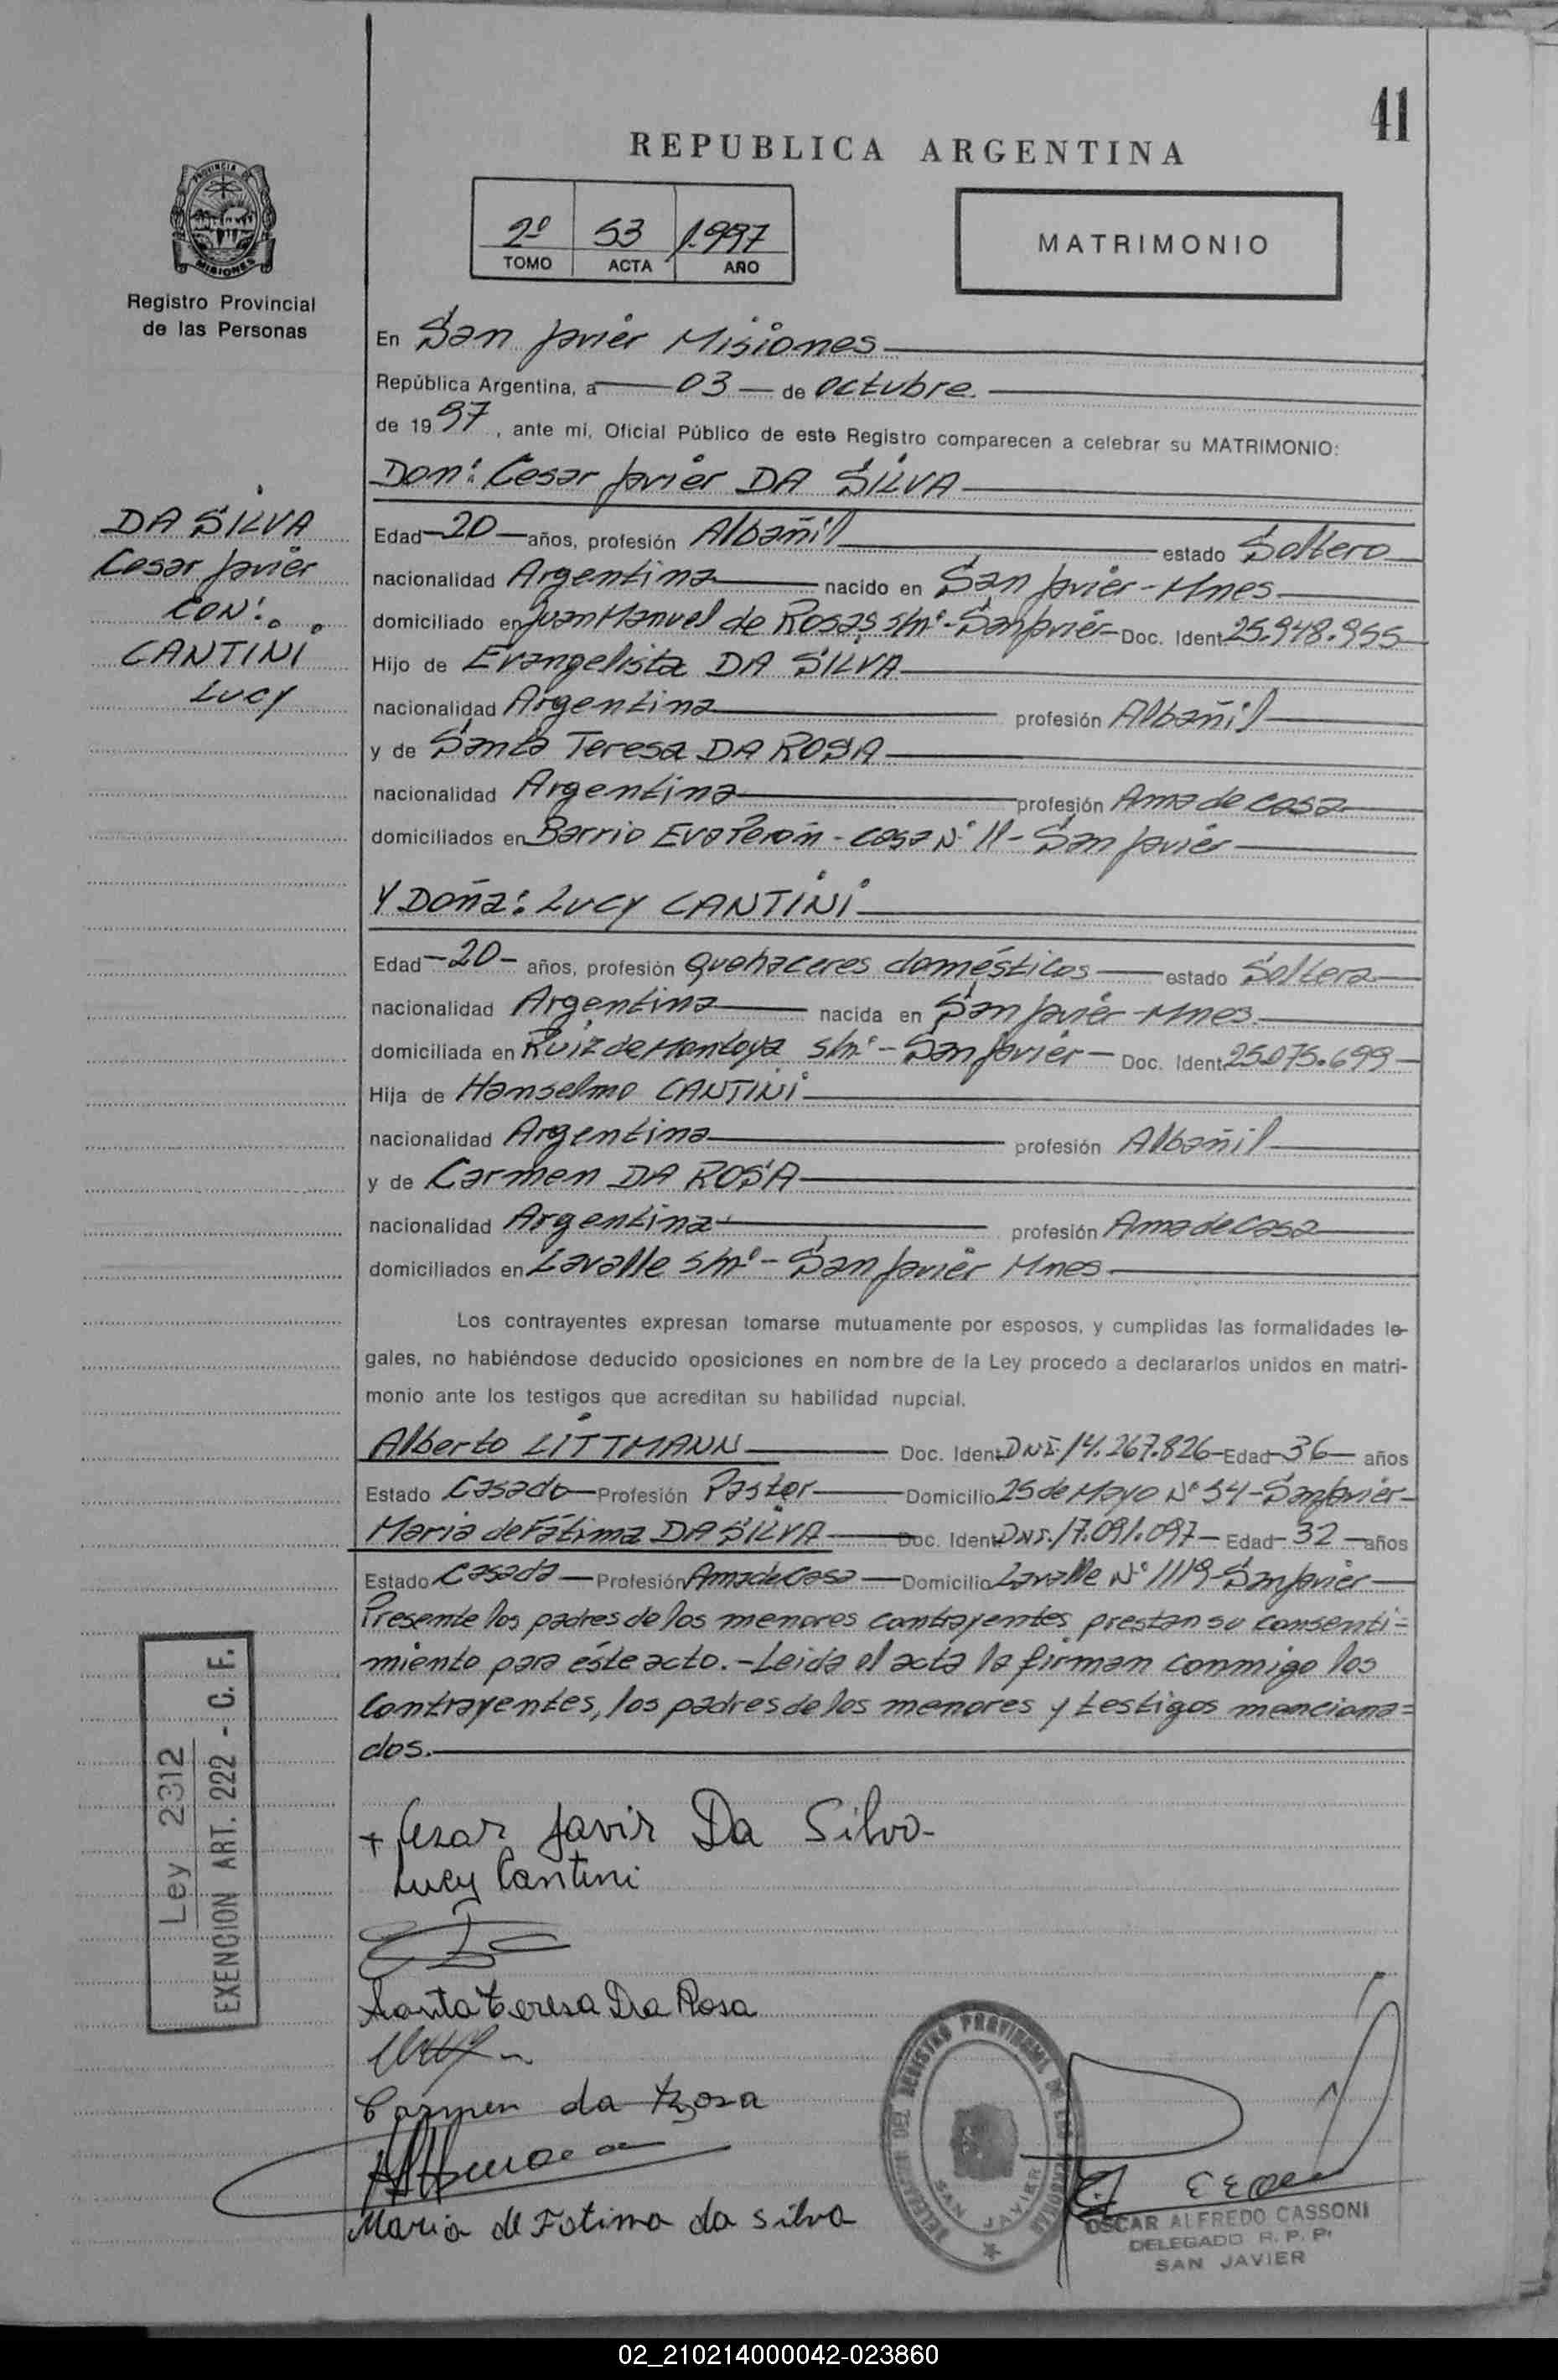 41
REPUBLICA ARGENTINA
PROVINCIA DE
MISIONES
Registro Provincial
de las Personas
2º 53 1.997
TOMO ACTA AÑO
MATRIMONIO
En San Javier Misiones
República Argentina, a 03 de octubre.
de 1997, ante mi, Oficial Público de este Registro comparecen a celebrar su MATRIMONIO:
Don: Cesar Javier DA SILVA
DA SILVA
Cesar Javier
CON:
CANTINI
Lucy
Edad 20 años, profesión Albañil estado Soltero
nacionalidad Argentina nacido en San Javier - Mnes.
domiciliado en Juan Manuel de Rosas s/nº - San Javier - Doc. Ident 25.948.955
Hijo de Evangelista DA SILVA
nacionalidad Argentina profesión Albañil
y de Santa Teresa DA ROSA
nacionalidad Argentina profesión Ama de casa
domiciliados en Barrio Eva Perón - casa Nº 11 - San Javier
Y Doña: Lucy CANTINI
Edad 20 - años, profesión quehaceres domésticos estado Soltera
nacionalidad Argentina nacida en San Javier - Mnes.
domiciliada en Ruiz de Montoya s/nº - San Javier - Doc. Ident 25.075.699
Hija de Hanselmo CANTINI
nacionalidad Argentina profesión Albañil
y de Carmen DA ROSA
nacionalidad Argentina profesión Ama de Casa
domiciliados en Lavalle s/nº - San Javier Mnes
Los contrayentes expresan tomarse mutuamente por esposos, y cumplidas las formalidades le-
gales, no habiéndose deducido oposiciones en nombre de la Ley procedo a declararlos unidos en matri-
monio ante los testigos que acreditan su habilidad nupcial.
Alberto LITTMANN Doc. Ident DNI. 14.267.826 Edad 36 años
Estado Casado Profesión Pastor Domicilio 25 de Mayo Nº 54 - San Javier
Maria de Fátima DA SILVA Doc. Ident DNI. 17.091.097 - Edad 32 años
Estado Casada Profesión Ama de Casa Domicilio Lavalle Nº 1119 - San Javier
Presente los padres de los menores contrayentes prestan su consenti=
miento para éste acto. - Leida el acta la firman conmigo los
contrayentes, los padres de los menores y testigos menciona=
dos.
Ley 2312
EXENCION ART. 222 - C. F.
+ Cezar Javir Da Silva
Lucy Cantini
Santa Teresa Da Rosa
Carmen da Rosa
Maria de Fatima da silva
DELEGACION DEL REGISTRO PROVINCIAL DE LAS PERSONAS
SAN JAVIER
OSCAR ALFREDO CASSONI
DELEGADO R. P. P.
SAN JAVIER
02_210214000042-023860